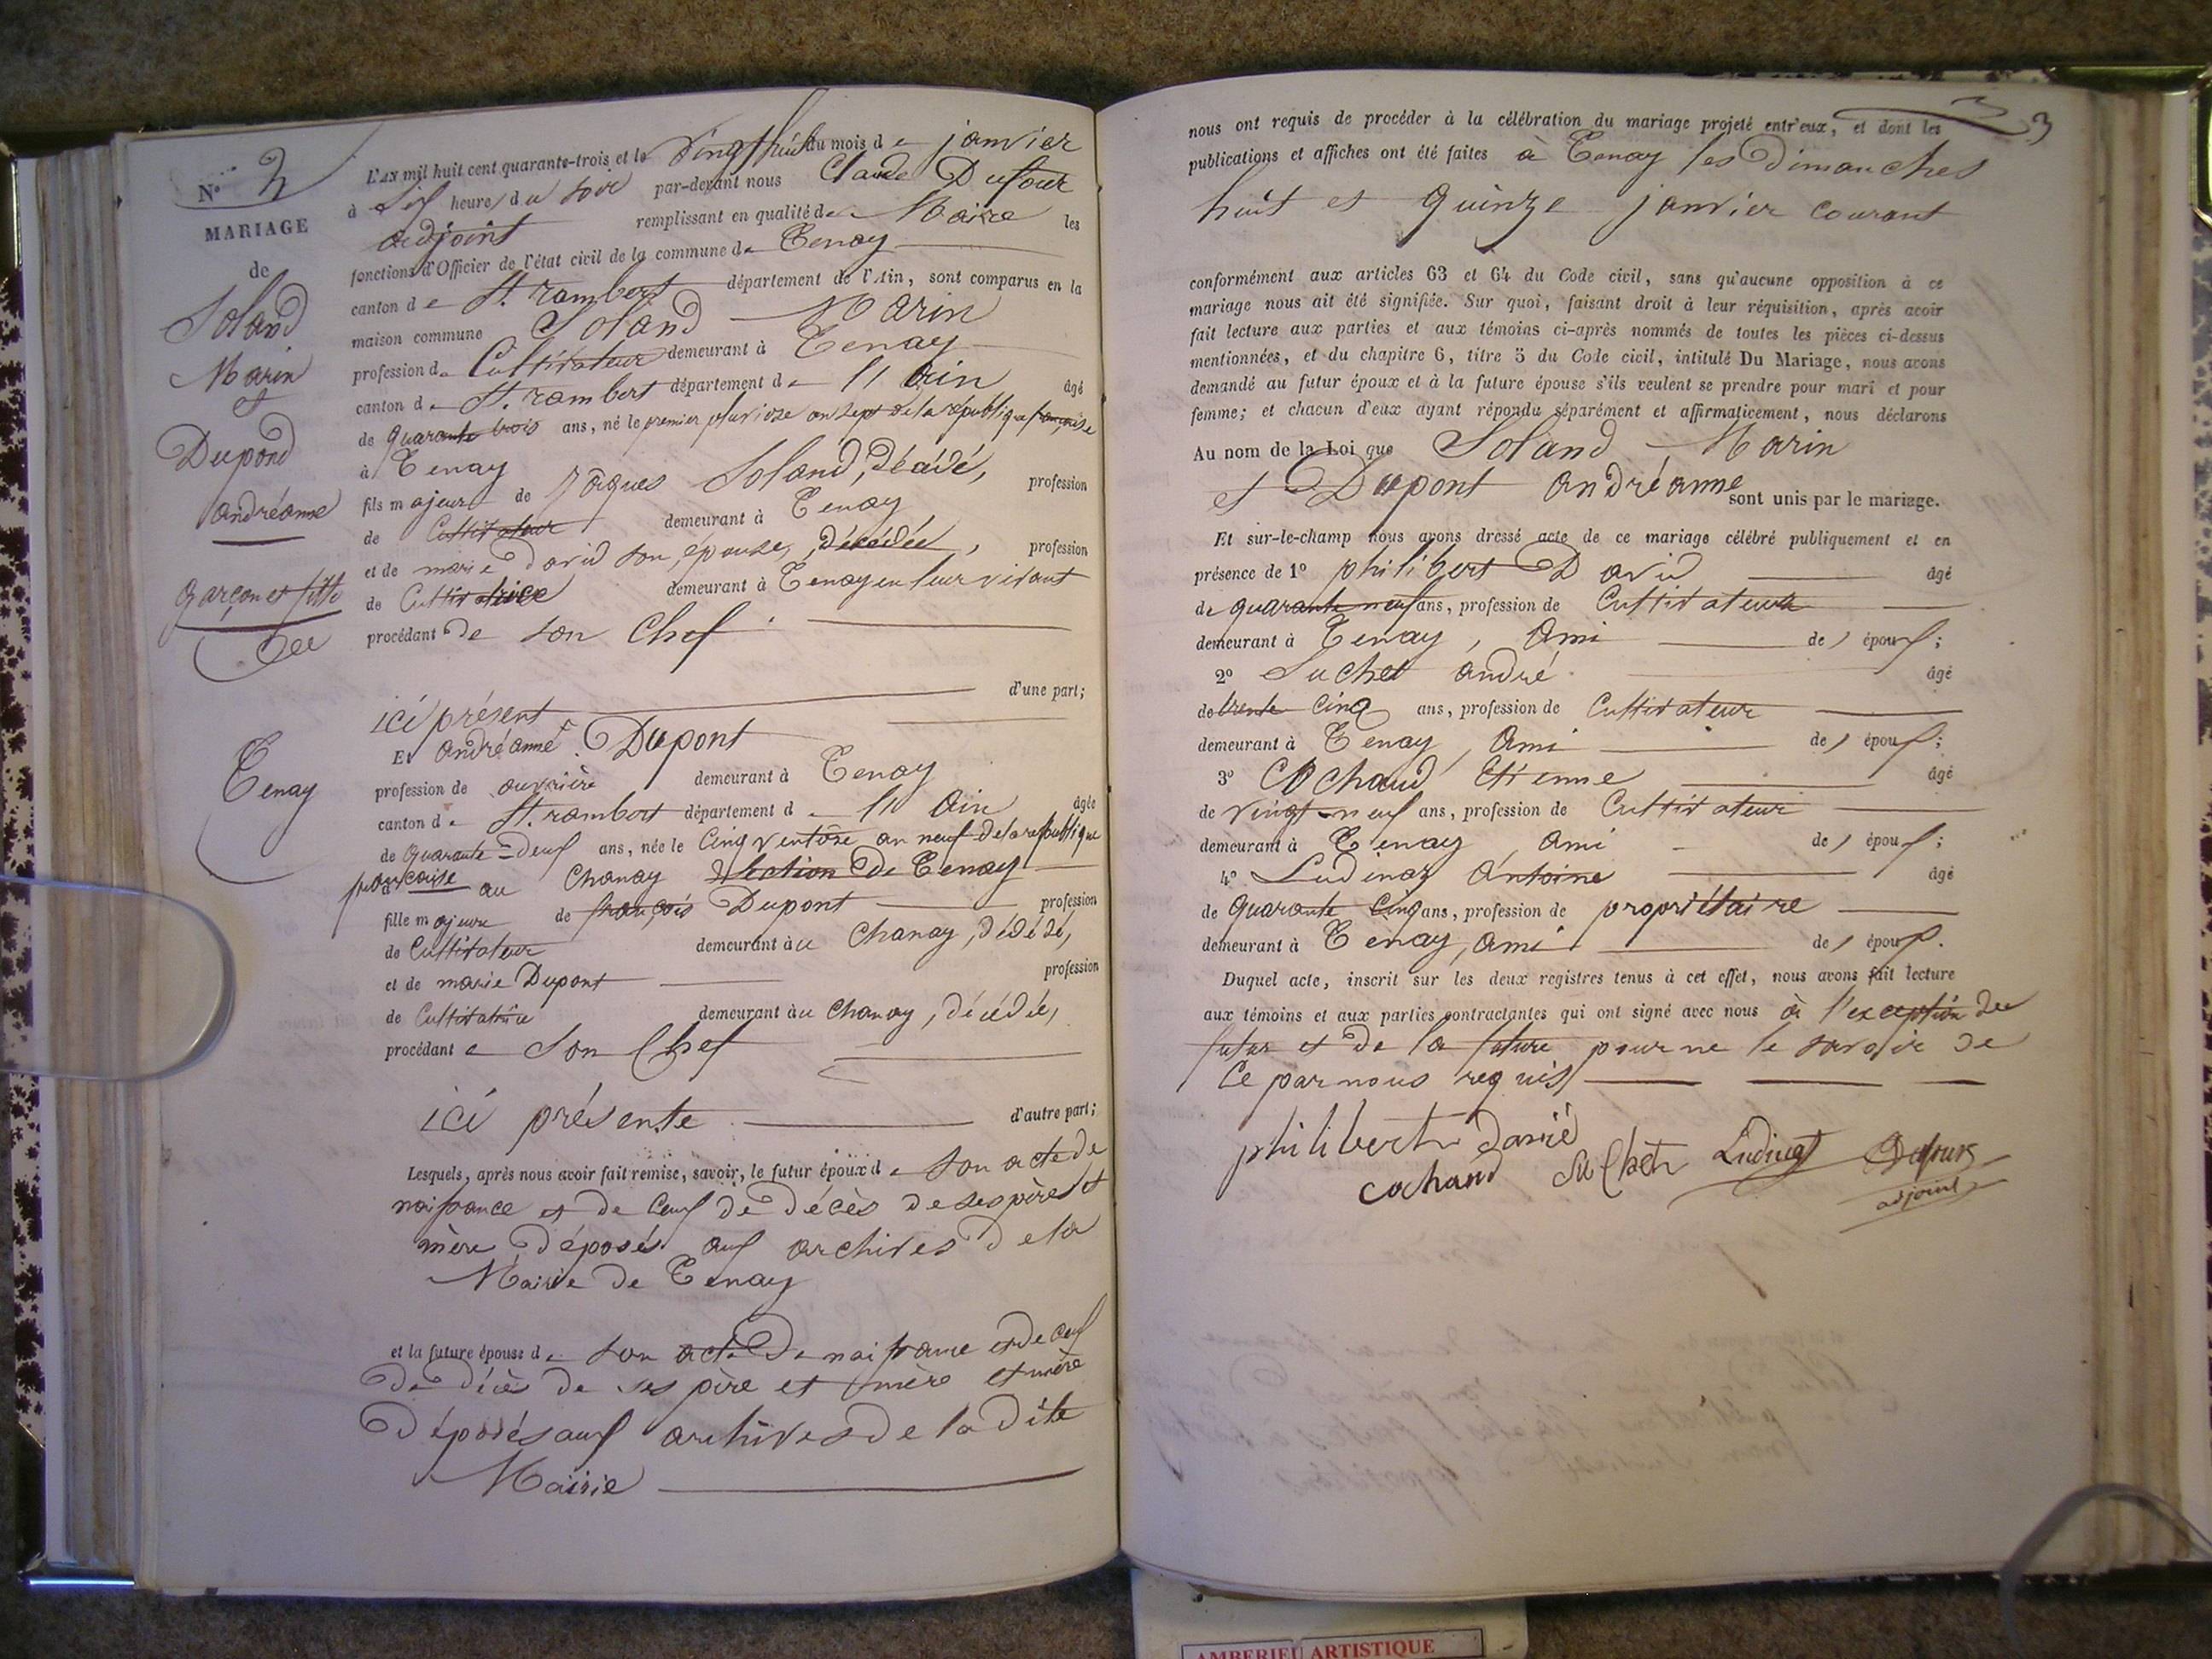 N° 2
MARIAGE
de
Soland
Marin
&
Dupond
andréanne
garçon et fille
Tenay
L'AN mil huit cent quarante-trois et le vingt huit du mois de janvier
à six heures du soir par-devant nous Claude Dufour
adjoint remplissant en qualité de Maire les
fonctions d'Officier de l'état civil de la commune de Tenay
canton de St. rambert département de l'Ain, sont comparus en la
maison commune Soland Marin
profession de Cultivateur demeurant à Tenay
canton de St. rambert département de l'Ain âgé
de quarante trois ans, né le premier pluviose an sept de la république française
à Tenay
fils majeur de jâques Soland, décédé, profession
de Cultivateur demeurant à Tenay
et de marie David son épouse, décédée, profession
de Cultivatrice demeurant à Tenay en leur vivant
procédant de son Chef
ici présent d'une part;
Et andréanne Dupont
profession de ouvrière demeurant à Tenay
canton de St. rambert département de l'Ain âgée
de quarante-deux ans, née le Cinq ventôse an neuf de la république
française au Chanay section de Tenay
fille majeure de françois Dupont profession
de Cultivateur demeurant au Chanay, décédé,
et de marie Dupont profession
de Cultivatrice demeurant au Chanay, décédée,
procédant de son Chef
ici présente d'autre part;
Lesquels, après nous avoir fait remise, savoir, le futur époux de son acte de
naissance et de Ceux de décès de ses père et
mère déposés aux archives de la
Mairie de Tenay
et la future épouse de son acte de naissance et de Ceux
de décès de ses père et mère et mère
déposés aux archives de la dite
Mairie
3
nous ont requis de procéder à la célébration du mariage projeté entr'eux, et dont les
publications et affiches ont été faites à Tenay les dimanches
huit et quinze janvier courant
conformément aux articles 63 et 64 du Code civil, sans qu'aucune opposition à ce
mariage nous ait été signifiée. Sur quoi, faisant droit à leur réquisition, après avoir
fait lecture aux parties et aux témoins ci-après nommés de toutes les pièces ci-dessus
mentionnées, et du chapitre 6, titre 5 du Code civil, intitulé Du Mariage, nous avons
demandé au futur époux et à la future épouse s'ils veulent se prendre pour mari et pour
femme; et chacun d'eux ayant répondu séparément et affirmativement, nous déclarons
Au nom de la Loi que Soland Marin
et Dupont andréanne sont unis par le mariage.
Et sur-le-champ nous avons dressé acte de ce mariage célébré publiquement et en
présence de 1° philibert David âgé
de quarante neuf ans, profession de Cultivateur
demeurant à Tenay, Ami des époux;
2° Suchet andré âgé
de trente Cinq ans, profession de Cultivateur
demeurant à Tenay, Ami des époux;
3° Cochaud Etienne âgé
de vingt-neuf ans, profession de Cultivateur
demeurant à Tenay Ami des époux;
4° Ludinaz Antoine âgé
de quarante Cinq ans, profession de propriétaire
demeurant à Tenay, Ami des époux.
Duquel acte, inscrit sur les deux registres tenus à cet effet, nous avons fait lecture
aux témoins et aux parties contractantes qui ont signé avec nous à l'exception du
futur et de la future pour ne le savoir de
Ce par nous requis
philibert david
cochand Suchet Ludinaz Dufour
adjoint
AMBERIEU ARTISTIQUE